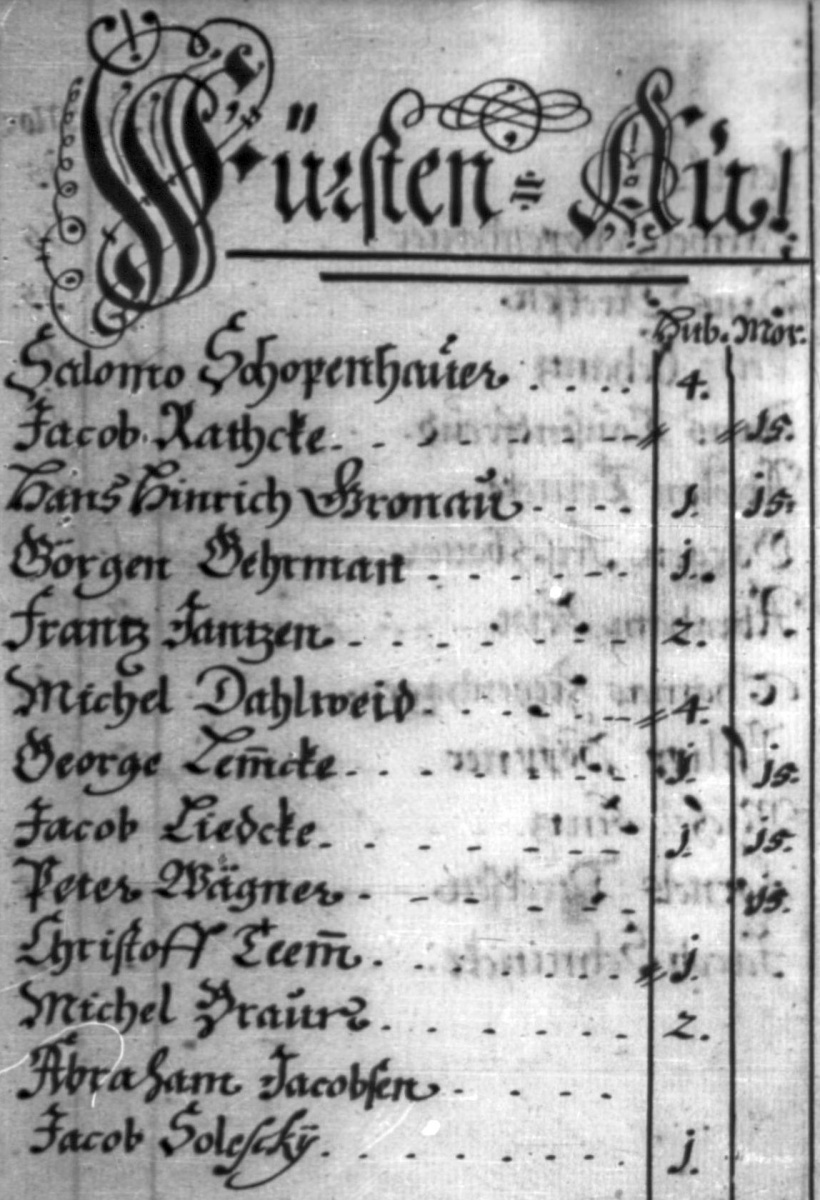 Fürsten = Aü!
Hub. Mor.
Salomo Schopenhaüer . . . . 4.
Jacob Rathcke . . . . . . 15.
Hans Hinrich Gronaü . . . . 1. 15.
Görgen Gehrman . . . . . 1.
Frantz Jantzen . . . . . . 2.
Michel Dahlweid . . . . . 4.
George Lem̄cke . . . . . . 1. 15.
Jacob Liedcke . . . . . . 1. 15.
Peter Wägner . . . . . . 15.
Christoff Teem̄ . . . . . . 1.
Michel . . . . . . 2.
Abraham Jacobsen . . . .
Jacob Solesckÿ . . . . . . 1.